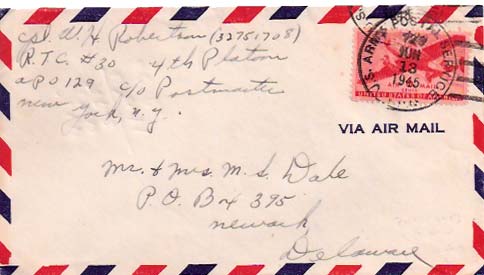 Cpl. W. H. Robertson (32751708)
R.T.C. #30 4th Platoon
APO 129 c/o Postmaster
new York, n.y.
U.S. ARMY POSTAL SERVICE
JUN
13
1945
AIR MAIL
UNITED STATES OF AMERICA
VIA AIR MAIL
Mr. & Mrs. M. S. Dale
P.O. Box 395
newark
Delaware